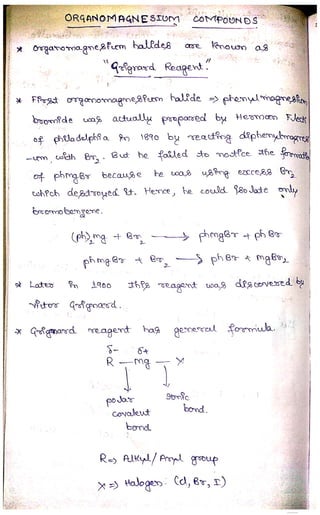 ORGANOMAGNESIUM COMPOUNDS
* Organomagnesium halides are known as
"Grignard Reagent."
* First organomagnesium halide => phenylmagnesium
bromide was actually prepared by Herman Fleck
of philadelphia in 1890 by reacting diphenylmagnes
-ium with Br2. But he failed to notice the formation
of phmgBr because he was using excess Br2
which destroyed it. Hence, he could isolate only
bromobenzene.
(ph)2 mg + Br2 → phmgBr + phBr
phmgBr + Br2 → phBr + mgBr2
* Later in 1900 this reagent was discovered by
Victor Grignard.
* Grignard reagent has general formula.
δ- δ+
R — mg — X
polar ionic
covalent bond.
bond
R => Alkyl/Aryl group
X => Halogen (Cl, Br, I)